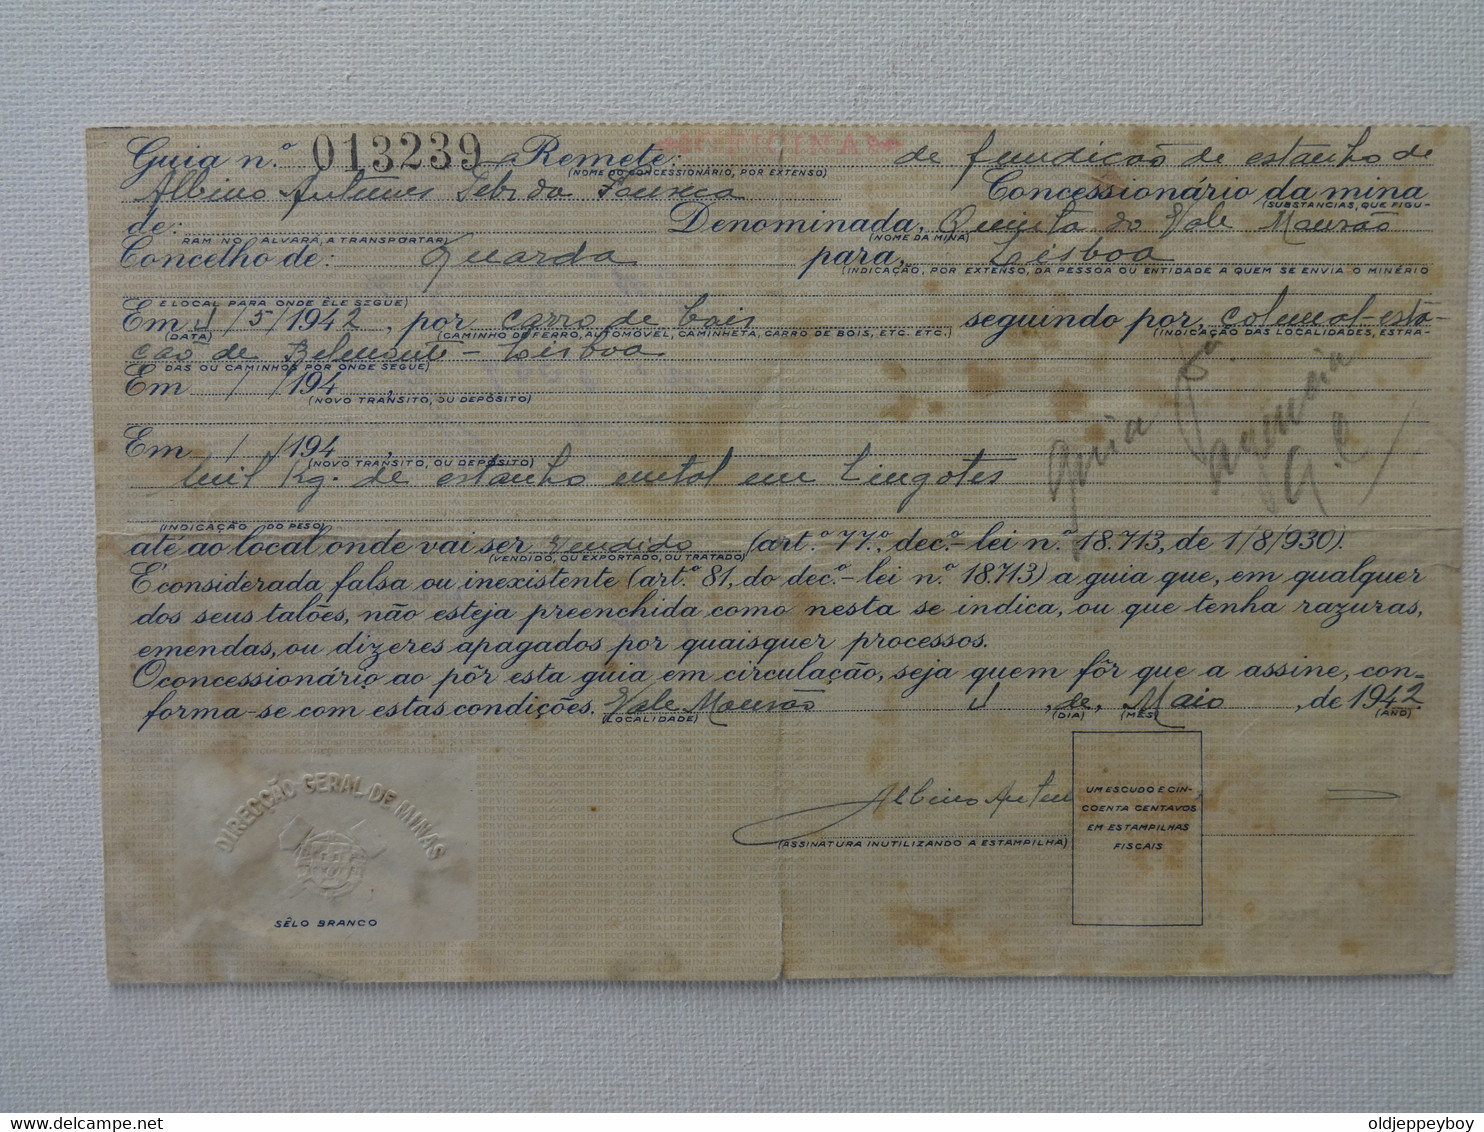 Guia n.º 013239 Remete: OFICINA de fundição de estanho de
(NOME DO CONCESSIONÁRIO, POR EXTENSO)
Albino Antunes da Fonseca Concessionário da mina
(SUBSTANCIAS, QUE FIGU-
de: Denominada, Quinta do Vale Mourão
RAM NO ALVARÁ, A TRANSPORTAR) (NOME DA MINA)
Concelho de: Guarda para, Lisboa
(INDICAÇÃO, POR EXTENSO, DA PESSOA OU ENTIDADE A QUEM SE ENVIA O MINÉRIO
E LOCAL PARA ONDE ÊLE SEGUE)
Em /5/1942, por carro de bois seguindo por, Colmeal-esta-
(DATA) (CAMINHO DE FERRO, AUTOMÓVEL, CAMINHETA, CARRO DE BOIS, ETC. ETC.) (INDICAÇÃO DAS LOCALIDADES, ESTRA-
ção de Belmonte - Lisboa
DAS OU CAMINHOS POR ONDE SEGUE)
Em / /194 ,
(NOVO TRANSITO, OU DEPÓSITO)
Em / /194 ,
(NOVO TRANSITO, OU DEPÓSITO)
mil Kg. de estanho metal em lingotes
Guia
agencia
(INDICAÇÃO DO PESO)
até ao local onde vai ser vendido (art.º 77.º, dec.º-lei n.º 18.713, de 1/8/930).
(VENDIDO, OU EXPORTADO, OU TRATADO)
É considerada falsa ou inexistente (art.º 81, do dec.º-lei n.º 18.713) a guia que, em qualquer
dos seus talões, não esteja preenchida como nesta se indica, ou que tenha razuras,
emendas, ou dizeres apagados por quaisquer processos.
O concessionário ao pôr esta guia em circulação, seja quem fôr que a assine, con-
forma-se com estas condições. Vale Mourão , de, Maio , de 1942
(LOCALIDADE) (DIA) (MÊS) (ANO)
DIRECÇÃO GERAL DE MINAS
SÊLO BRANCO
Albino Antun
(ASSINATURA INUTILIZANDO A ESTAMPILHA)
UM ESCUDO E CIN-
COENTA CENTAVOS
EM ESTAMPILHAS
FISCAIS
Delcampe.net
oldjeppeyboy